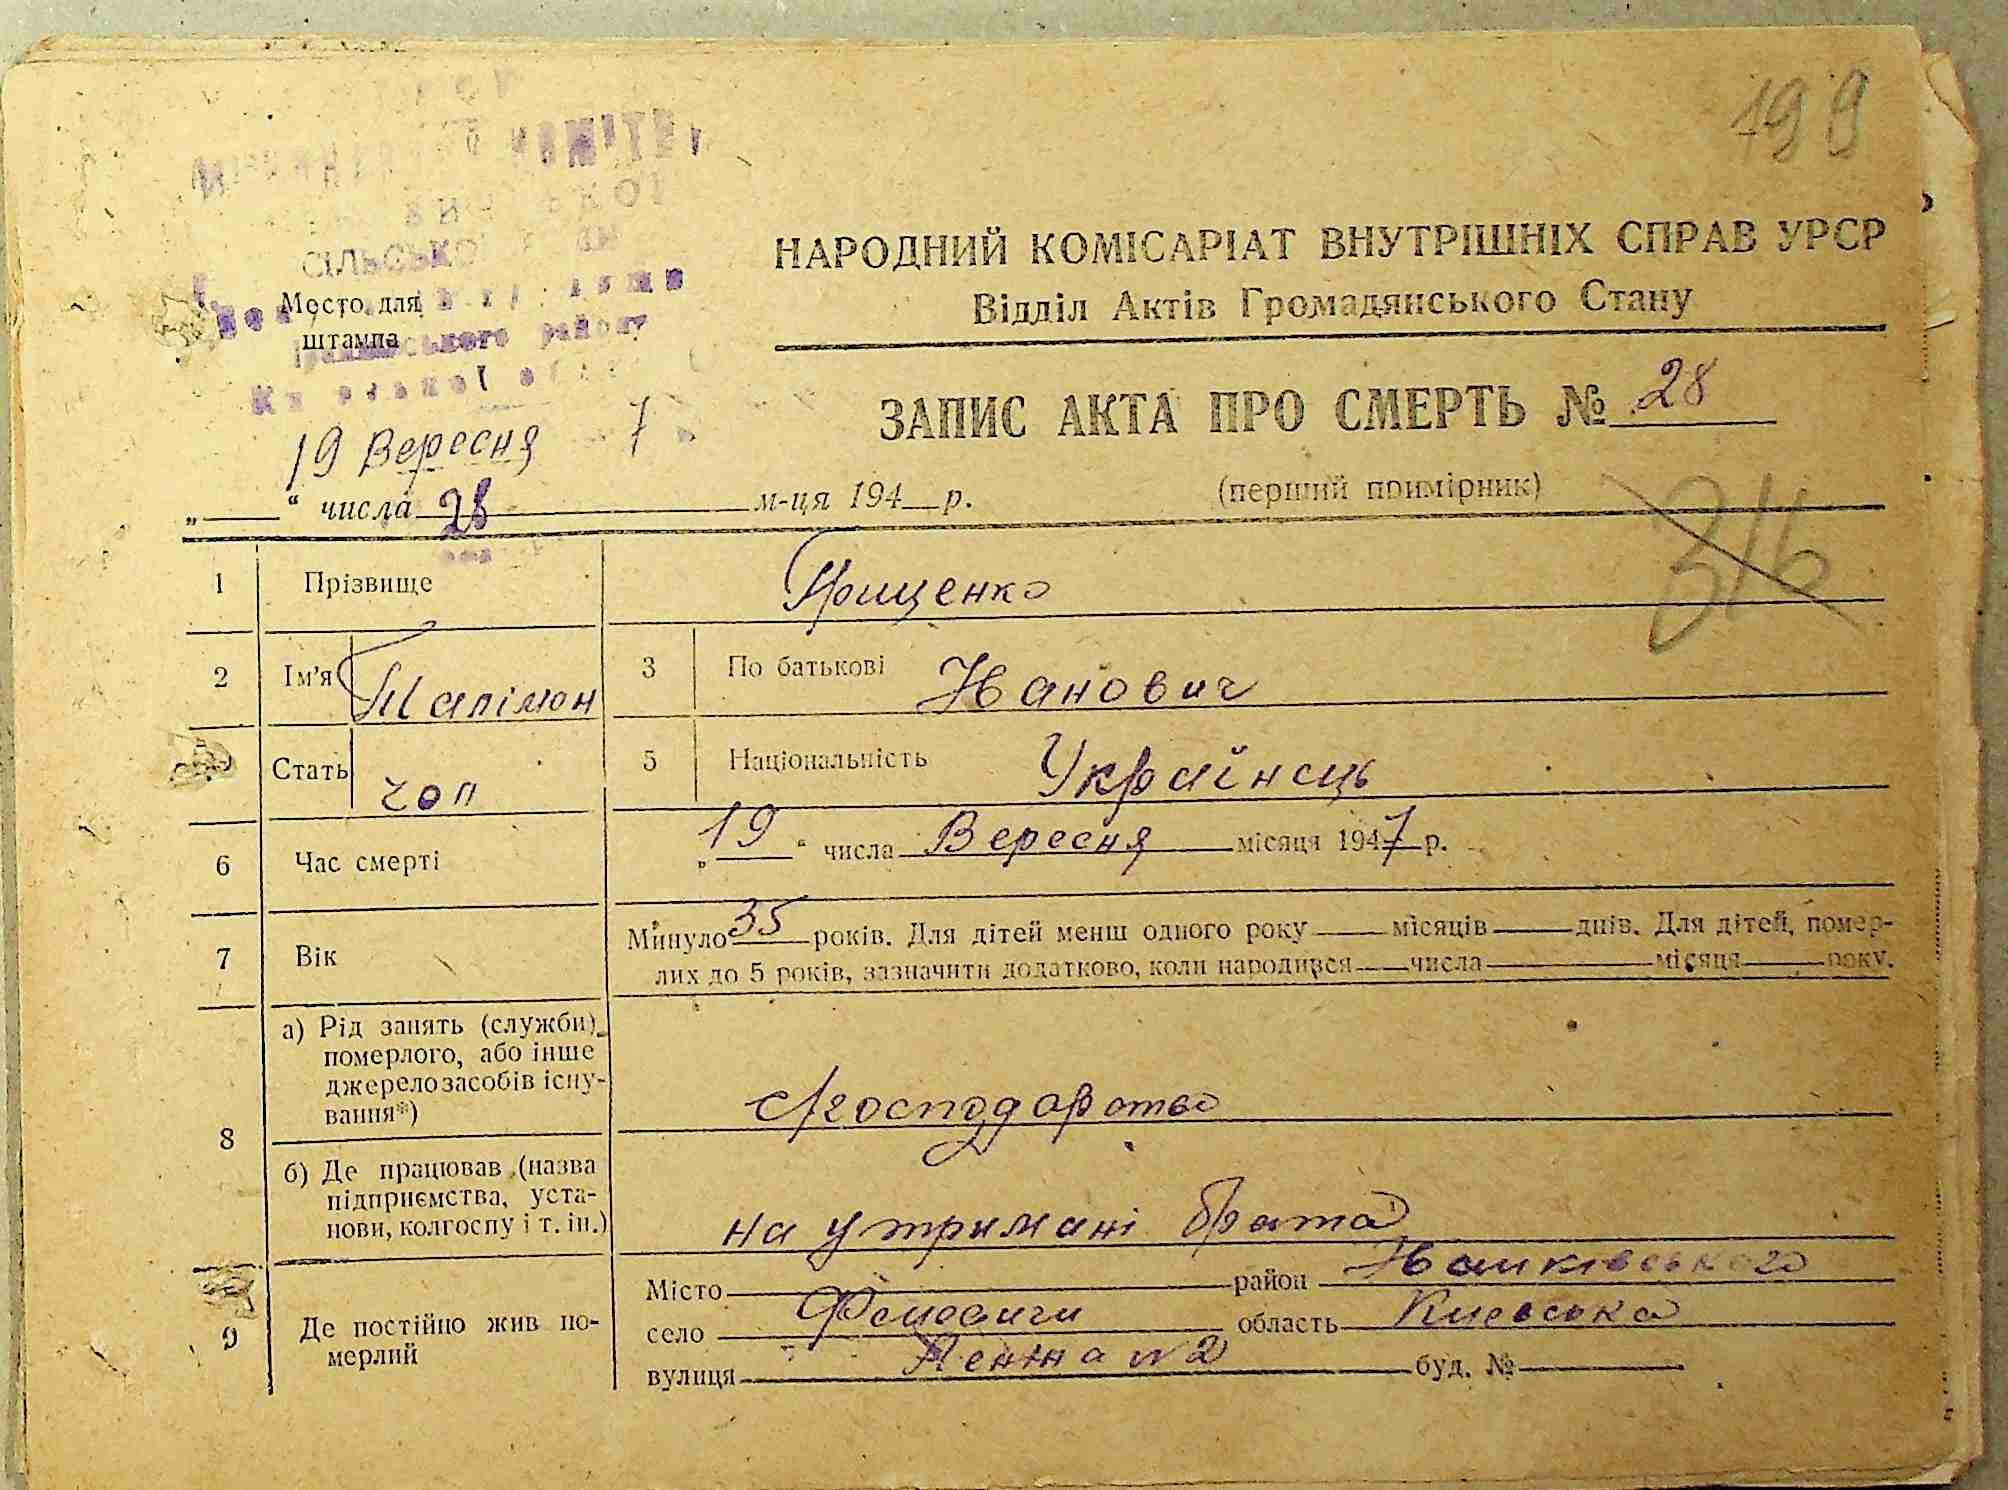 199
СІЛЬСЬКО
району
Место для
штампа
НАРОДНИЙ КОМІСАРІАТ ВНУТРІШНІХ СПРАВ УРСР
Відділ Актів Громадянського Стану
ЗАПИС АКТА ПРО СМЕРТЬ № 28
(перший примірник)
19 Вересня 7
„ “ числа 28 м-ця 194 р.
316
1 Прізвище Грищенко
2 Ім'я 3 По батькові Иванович
Стать чол 5 Національність Українець
6 Час смерті „19“ числа Вересня місяця 1947 р.
7 Вік Минуло 35 років. Для дітей менш одного року місяців днів. Для дітей, помер-
лих до 5 років, зазначити додатково, коли народився числа місяця року.
8 а) Рід занять (служби)
померлого, або інше
джерело засобів існу-
вання*)
с/господарство
б) Де працював (назва
підприємства, уста-
нови, колгоспу і т. ін.)
на утримані брата
9 Де постійно жив по-
мерлий
Місто район Иванківського
село область Киевська
вулиця Леніна №2 буд. №